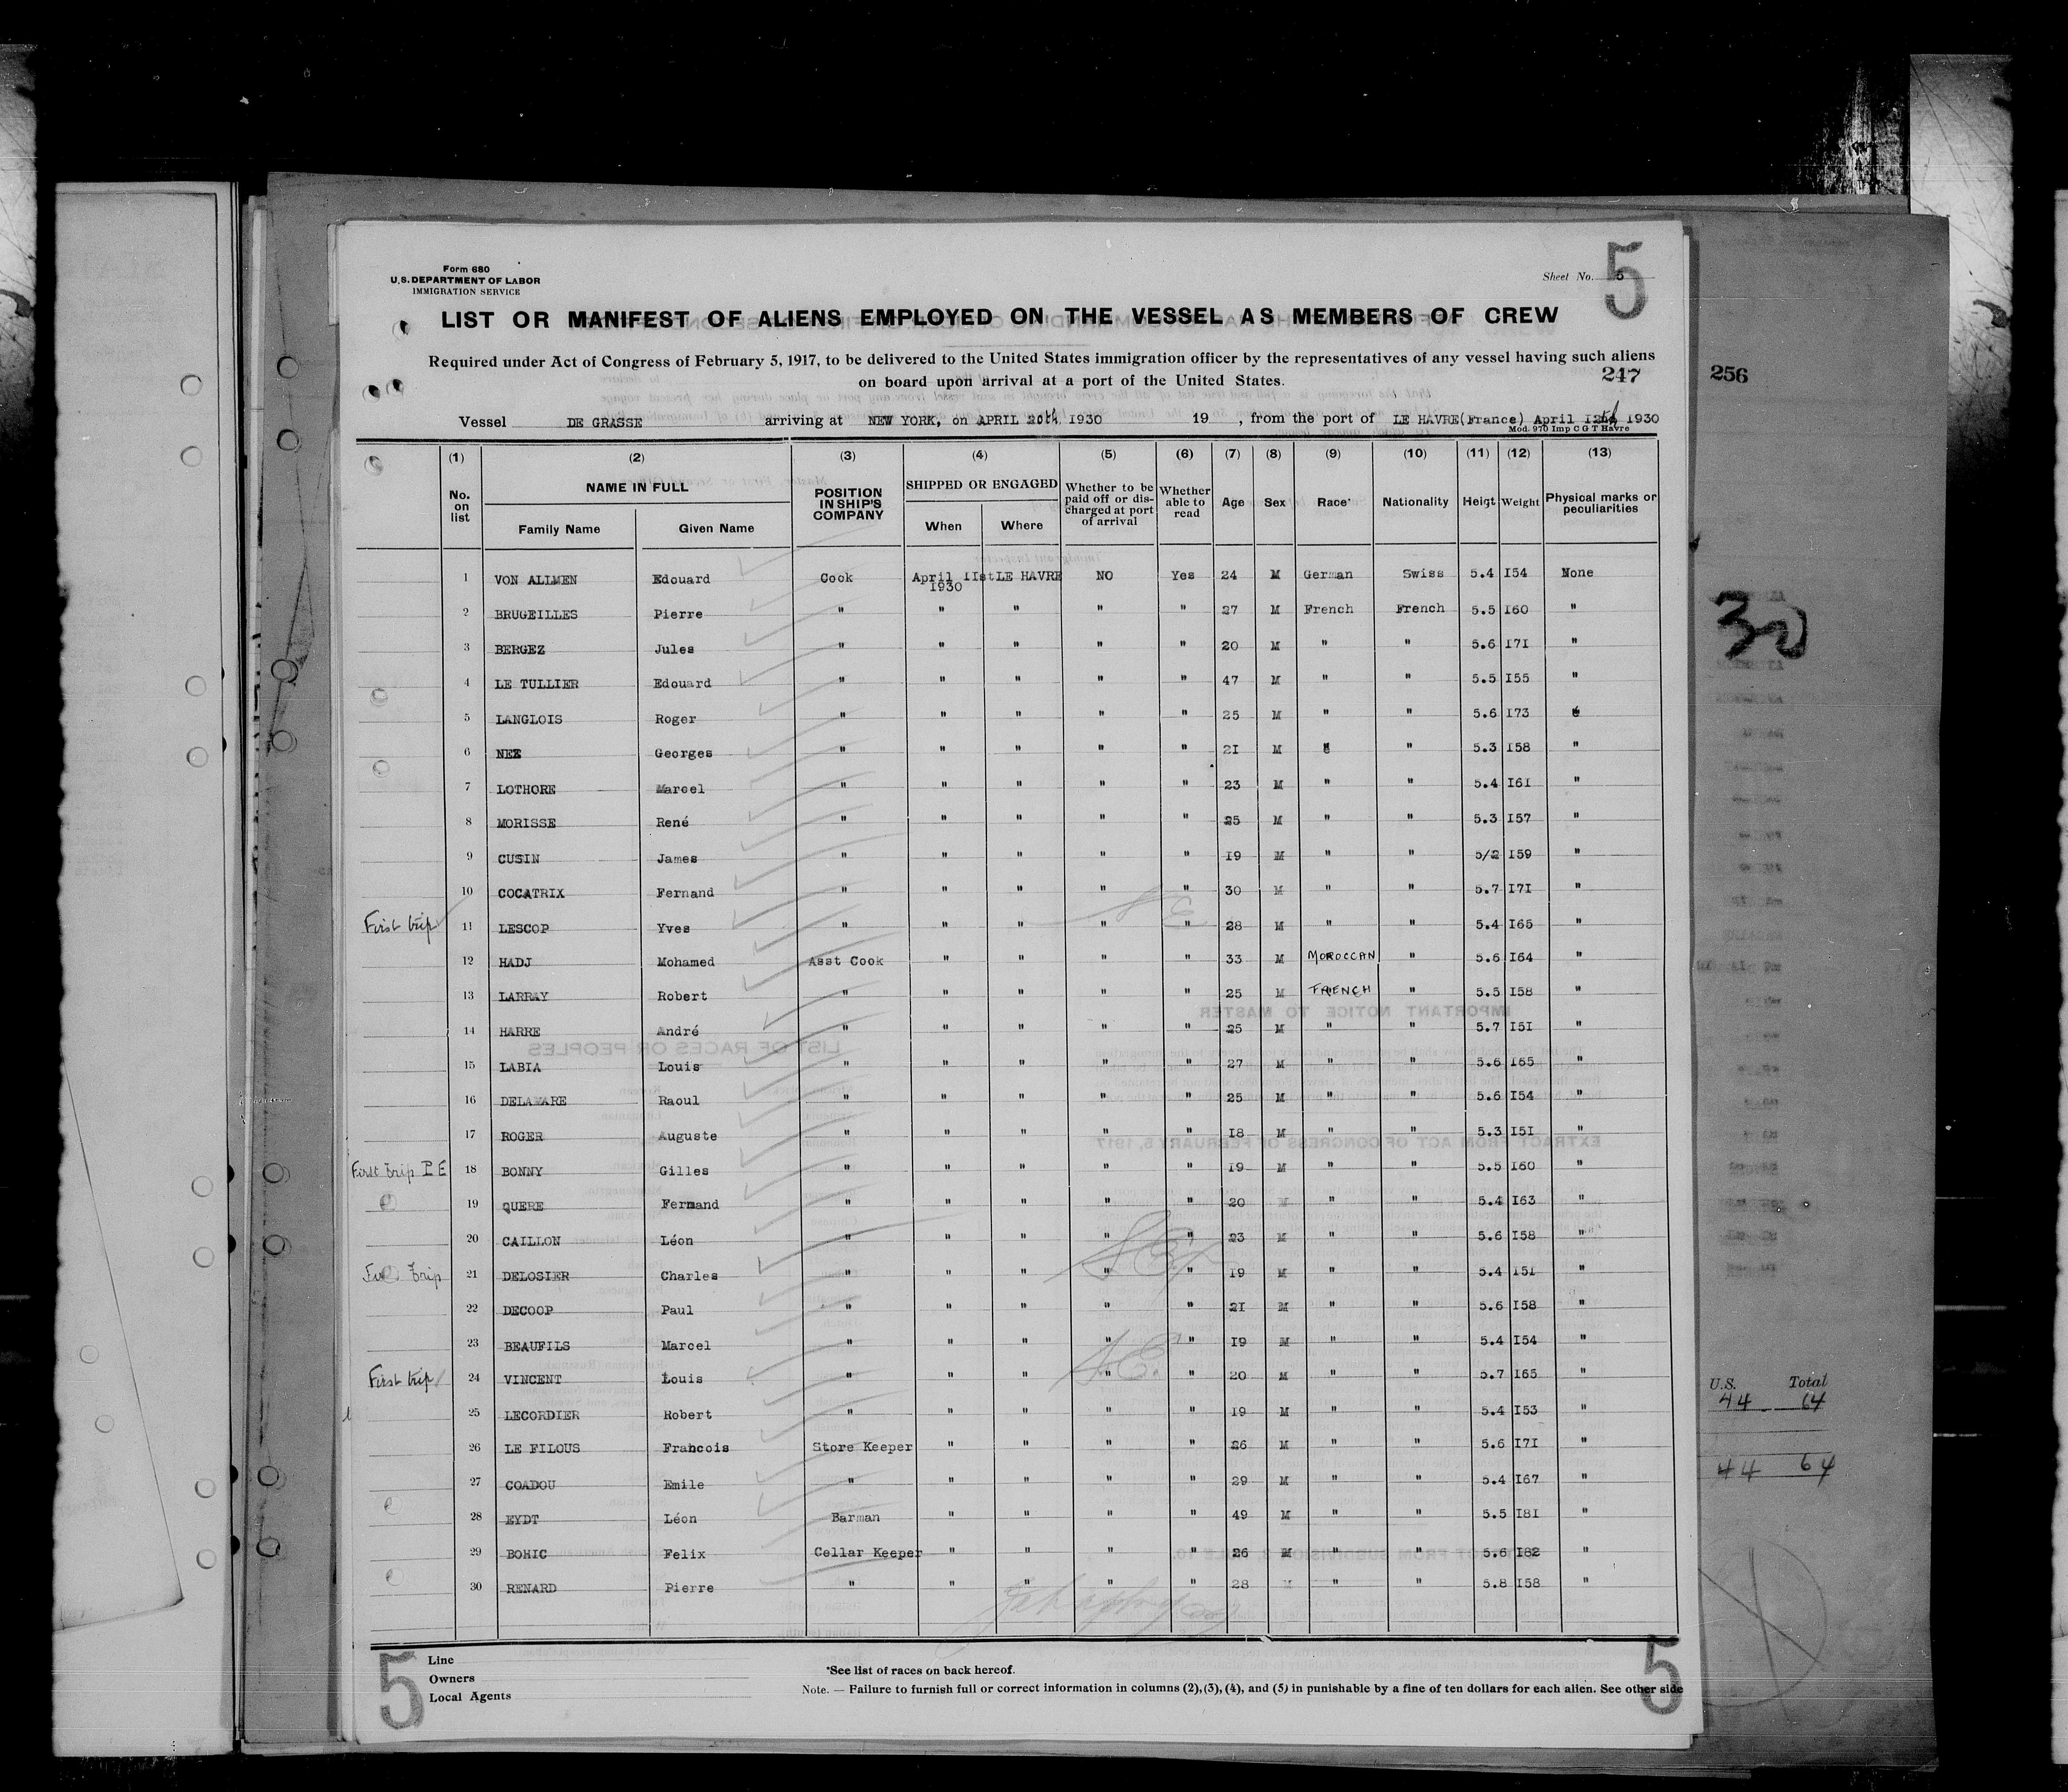 Form 680
U.S. DEPARTMENT OF LABOR
IMMIGRATION SERVICE
Sheet No. 5
5
LIST OR MANIFEST OF ALIENS EMPLOYED ON THE VESSEL AS MEMBERS OF CREW
Required under Act of Congress of February 5, 1917, to be delivered to the United States immigration officer by the representatives of any vessel having such aliens
on board upon arrival at a port of the United States.
247
256
Vessel DE GRASSE arriving at NEW YORK, on APRIL 20th 1930 19 , from the port of LE HAVRE(France) April 1930
Mod. 970 Imp C G T Havre
(1) (2) (3) (4) (5) (6) (7) (8) (9) (10) (11) (12) (13)
No. on list NAME IN FULL Family Name Given Name POSITION IN SHIP'S COMPANY SHIPPED OR ENGAGED When Where Whether to be paid off or discharged at port of arrival Whether able to read Age Sex Race* Nationality Heigt Weight Physical marks or peculiarities
1 VON ALLMEN Edouard Cook April IIst 1930 LE HAVRE NO Yes 24 M German Swiss 5.4 I54 None
2 BRUGEILLES Pierre " " " " " 27 M French French 5.5 I60 "
30
3 BERGEZ Jules " " " " " 20 M " " 5.6 I7I "
4 LE TULLIER Edouard " " " " " 47 M " " 5.5 I55 "
5 LANGLOIS Roger " " " " " 25 M " " 5.6 I73
6 NEZ Georges " " " " " 2I M " 5.3 I58 "
7 LOTHORE Marcel " " " " " 23 M " " 5.4 I6I "
8 MORISSE René " " " " " 25 M " " 5.3 I57 "
9 CUSIN James " " " " " I9 M " " 5/2 I59 "
10 COCATRIX Fernand " " " " " 30 M " " 5.7 I7I "
First trip 11 LESCOP Yves " " " " " 28 M " " 5.4 I65 "
12 HADJ Mohamed Asst Cook " " " " 33 M MOROCCAN " 5.6 I64 "
13 LARRAY Robert " " " " " 25 M FRENCH " 5.5 I58 "
14 HARRE André " " " " " 25 M " " 5.7 I5I "
15 LABIA Louis " " " " " 27 M " " 5.6 I65 "
16 DELAMARE Raoul " " " " " 25 M " " 5.6 I54 "
17 ROGER Auguste " " " " " I8 M " " 5.3 I5I "
First trip P E 18 BONNY Gilles " " " " " I9 M " " 5.5 I60 "
19 QUERE Fernand " " " " " 20 M " " 5.4 I63 "
20 CAILLON Léon " " " " " 23 M " " 5.6 I58 "
trip 21 DELOSIER Charles " " " " " I9 M " " 5.4 I5I "
22 DECOOP Paul " " " " " 2I M " " 5.6 I58 "
23 BEAUFILS Marcel " " " " " I9 M " " 5.4 I54 "
First trip 24 VINCENT Louis " " " " " 20 M " " 5.7 I65 "
25 LECORDIER Robert " " " " " I9 M " " 5.4 I53 "
26 LE FILOUS Francois Store Keeper " " " " 26 M " " 5.6 I7I "
27 COADOU Emile " " " " " 29 M " " 5.4 I67 "
28 EYDT Léon Barman " " " " 49 M " " 5.5 I8I "
29 BOHIC Felix Cellar Keeper " " " " 26 M " " 5.6 I82 "
30 RENARD Pierre " " " " " 28 M " " 5.8 I58 "
U.S. Total
44 64
44 64
5
Line
Owners
Local Agents
*See list of races on back hereof.
Note. — Failure to furnish full or correct information in columns (2), (3), (4), and (5) in punishable by a fine of ten dollars for each alien. See other side
5